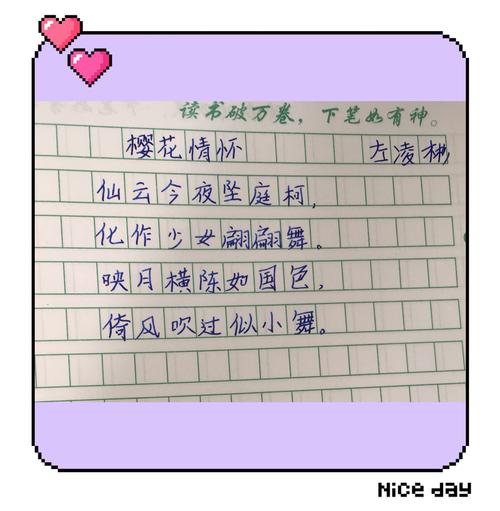 读书破万卷，下笔如有神。
樱花情怀 左凌彬
仙云今夜坠庭柯，
化作少女翩翩舞。
映月横陈如国色，
倚风吹过似小舞。
Nice day